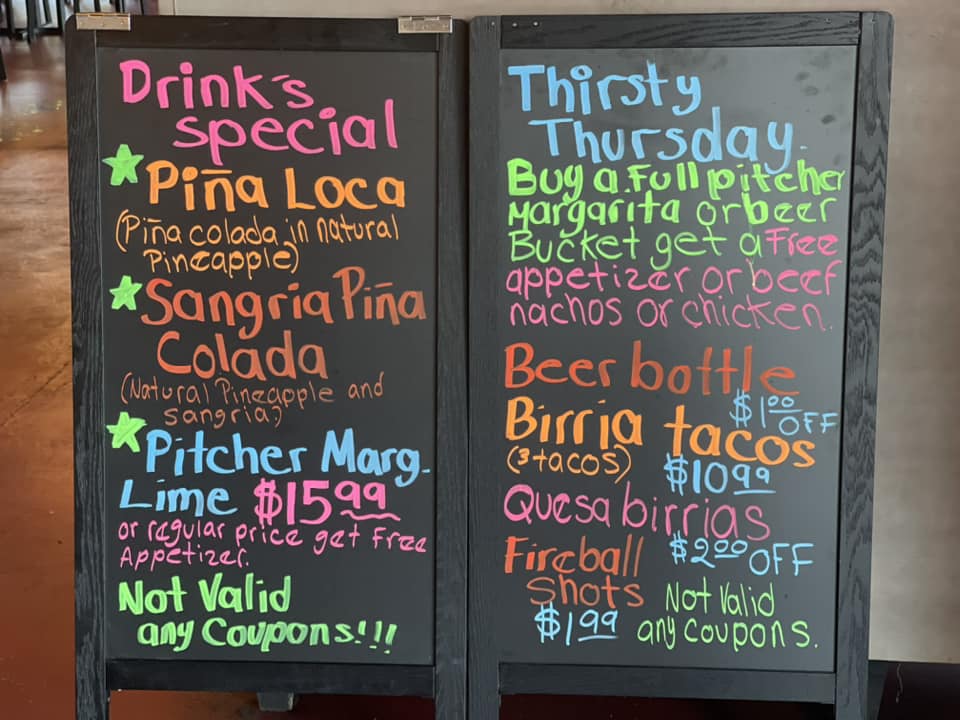 Drink's
special
Piña Loca
(Piña colada in natural
Pineapple)
Sangria Piña
Colada
(Natural Pineapple and
sangria)
Pitcher Marg.
Lime $15.99
or regular price get Free
Appetizer.
Not Valid
any Coupons!!!
Thirsty
Thursday.
Buy a Full pitcher
Margarita or beer
Bucket get a Free
appetizer or beef
nachos or chicken.
Beer bottle
$1.00 OFF
Birria tacos
(3 tacos) $10.99
Quesabirrias
$2.00 OFF
Fireball
Shots
$1.99
Not Valid
any coupons.